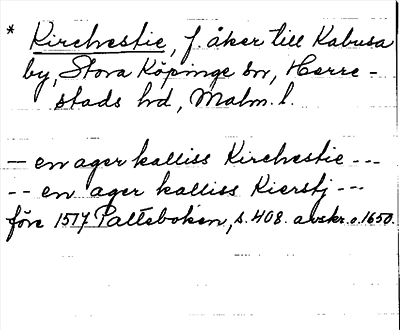 * Kirchestie, f. åker till Kabusa
by, Stora Köpinge sn, Herre-
stads hd, Malm. l.
– en ager kalliss Kirchestie ---
-- en ager kalliss Kierstj ---
före 1517 Palteboken, s. 408. avskr. o. 1650.